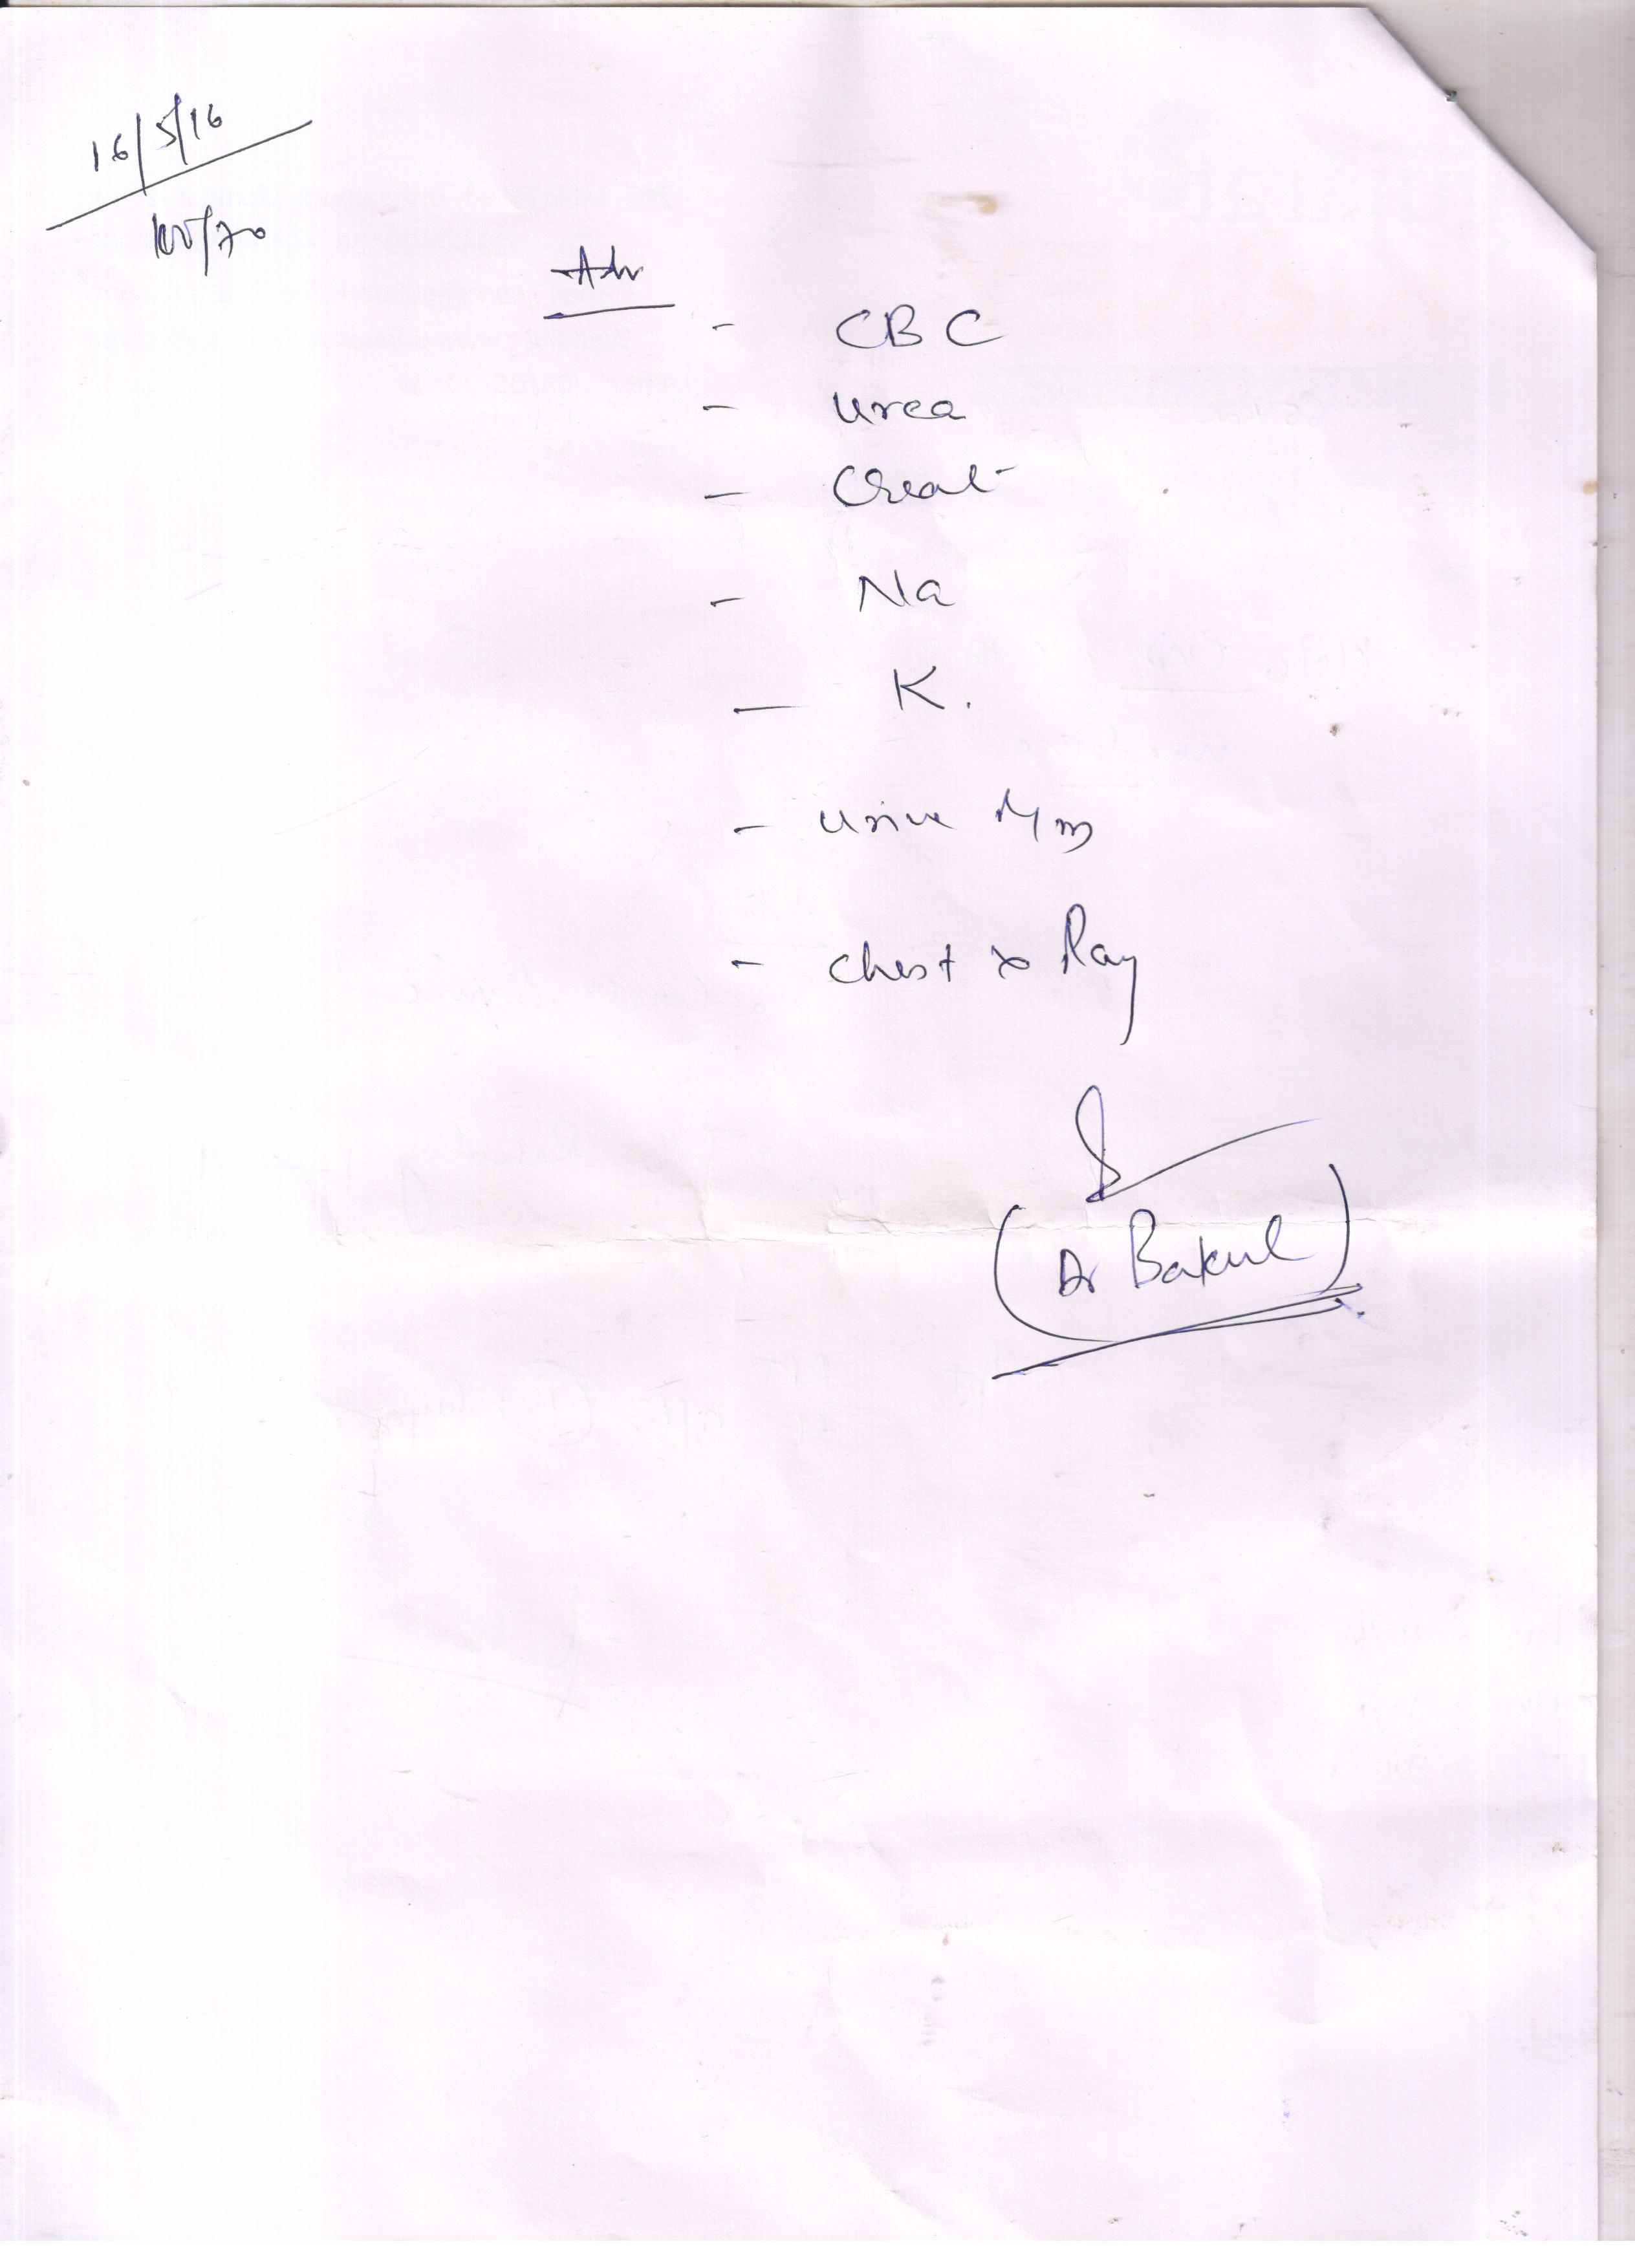 16/5/16
100/70
Adv
- CBC
- Urea
- Creat
- Na
- K.
- Urine R/M
- Chest x Ray
(Dr Bakul)